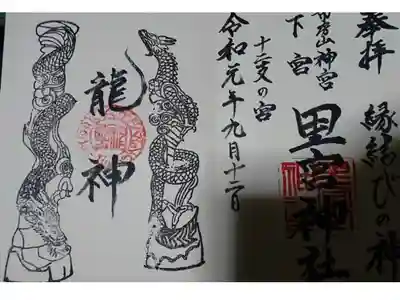 奉拝
縁結びの神
里宮神社
神宮
下宮
十二支の宮
令和元年九月十二日
龍神